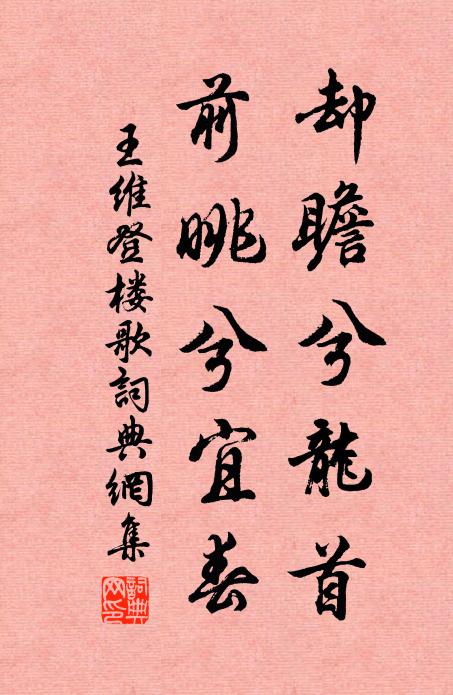 却瞻兮龍首
前眺兮宜春
王维登楼歌詞典網集
詞典網印